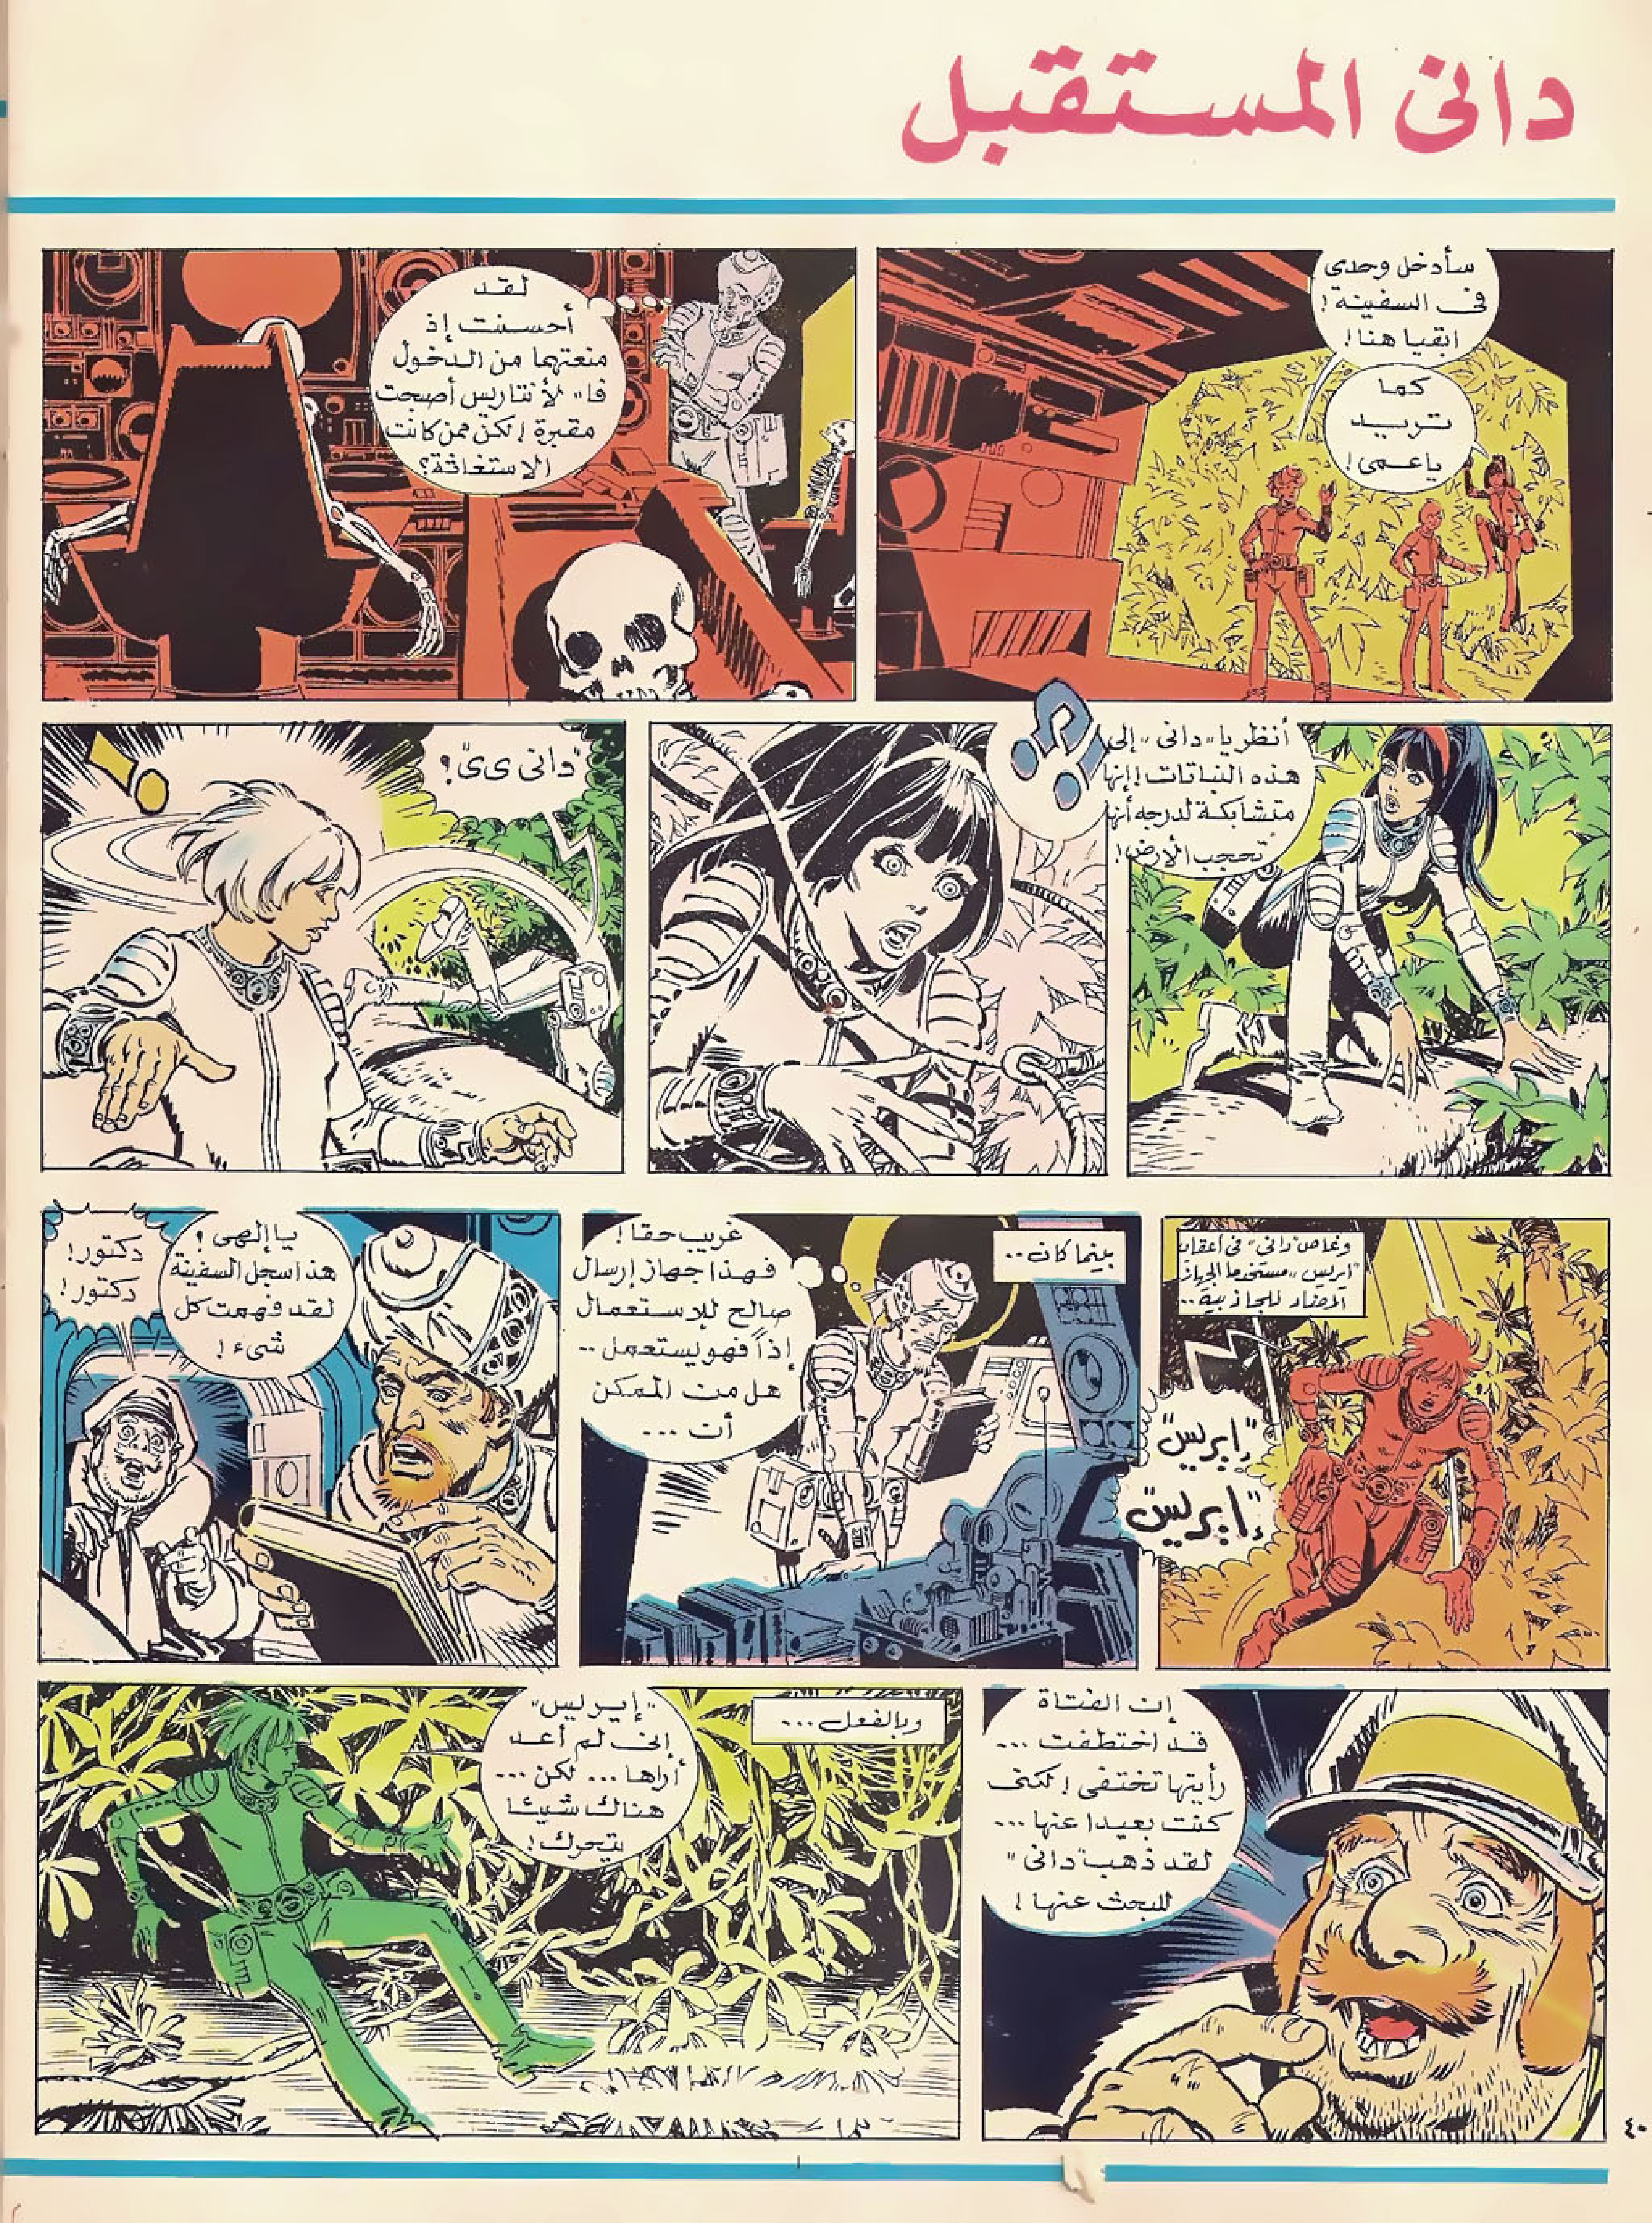 دانى المستقبل
سأدخل وحدى
فى السفينة!
ابقيا هنا!
كما
تريد
ياعمى!
لقد
أحسنت إذ
منعتهما من الدخول
فا" لأنتاريس أصبحت
مقبرة! لكن ممن كانت
الاستغاثة؟
أنظر يا "دانى" إلى
هذه النباتات! إنها
متشابكة لدرجه أنها
تحجب الأرض!
"دانى ىى"؟
وغاص "دانى" فى أعماق
"ايريس" مستخدما الجهاز
المضاد للجاذبية..
"إيريس"
"إيريس"
بينما كان..
غريب حقا!
فهذا جهاز إرسال
صالح للإستعمال
إذاً فهو يستعمل..
هل من الممكن
أن ...
يا إلهى؟
هذا سجل السفينة
لقد فهمت كل
شىء!
دكتور!
دكتور!
إن الفتاة
قد اختطفت ...
رأيتها تختفى! لكنى
كنت بعيدا عنها ...
لقد ذهب "دانى"
للبحث عنها!
وبالفعل ...
"إيريس"
إنى لم أعد
أراها... لكن ...
هناك شيئا
يتحرك!
٤٠